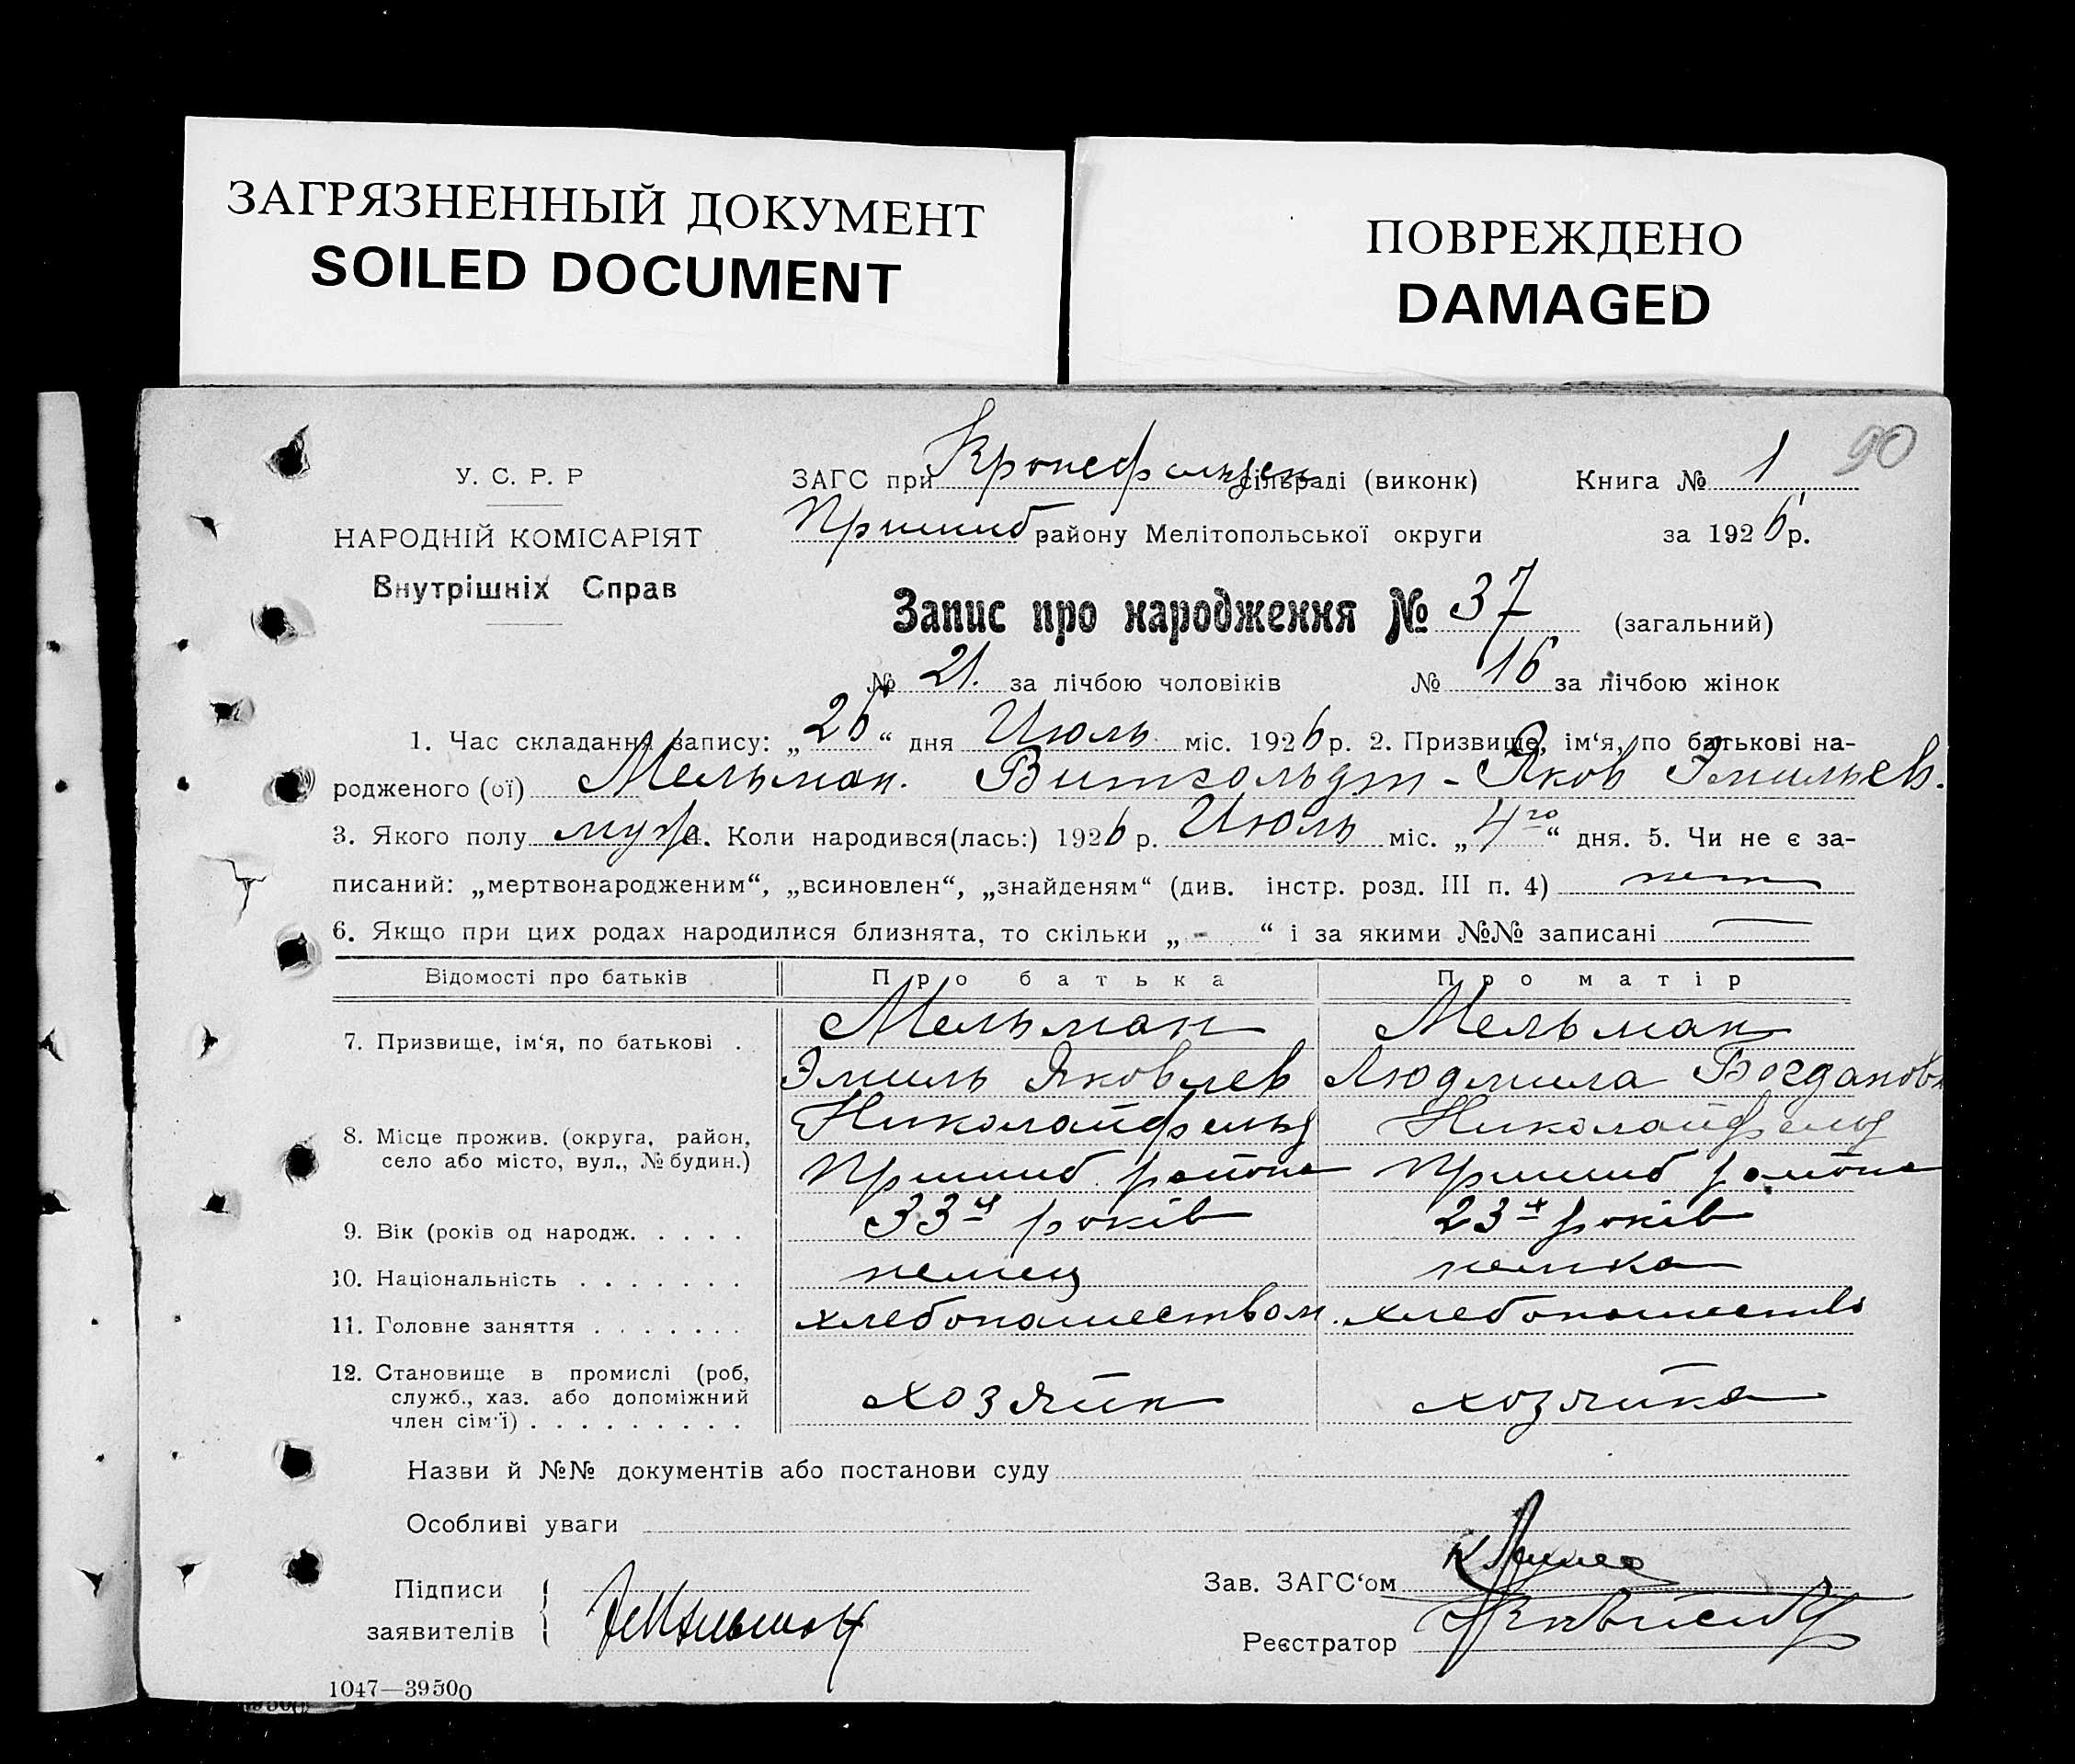 ЗАГРЯЗНЕННЫЙ ДОКУМЕНТ
SOILED DOCUMENT
ПОВРЕЖДЕНО
DAMAGED
90
У. С. Р. Р
НАРОДНІЙ КОМІСАРІЯТ
Внутрішніх Справ
ЗАГС при Кронсфельден сільраді (виконк) Книга № 1
Пришиб району Мелітопольської округи за 1926 р.
Запис про народження № 37 (загальний)
№ 21. за лічбою чоловіків № 16 за лічбою жінок
1. Час складання запису: „26“ дня Июль міс. 1926 р. 2. Призвище, ім‘я, по батькові на-
родженого (ої) Мельман. Витгольдт - Яков Эмильев.
3. Якого полу муж 4. Коли народився(лась:) 1926 р. Июль міс. „4го“ дня. 5. Чи не є за-
писаний: „мертвонародженим“, „всиновлен“, „знайденям“ (див. інстр. розд. III п. 4) нет
6. Якщо при цих родах народилися близнята, то скільки „ - “ і за якими №№ записані —
Відомості про батьків Про батька Про матір
7. Призвище, ім‘я, по батькові . Мельман Мельман
Эмиль Яковлев Людмила Богданов
8. Місце прожив. (округа, район, Николайфельд Николайфельд
село або місто, вул., № будин.) Пришиб района Пришиб района
9. Вік (років од народж. . . . . 33 років 23 років
10. Національність . . . . . . . немец немка
11. Головне заняття . . . . . . . хлебопашеством. хлебопашество
12. Становище в промислі (роб,
служб., хаз. або допоміжний хозяин хозяйка
член сім‘ї) . . . . . . . . .
Назви й №№ документів або постанови суду
Особливі уваги
Підписи Зав. ЗАГС‘ом
заявителів Реєстратор
1047—39500